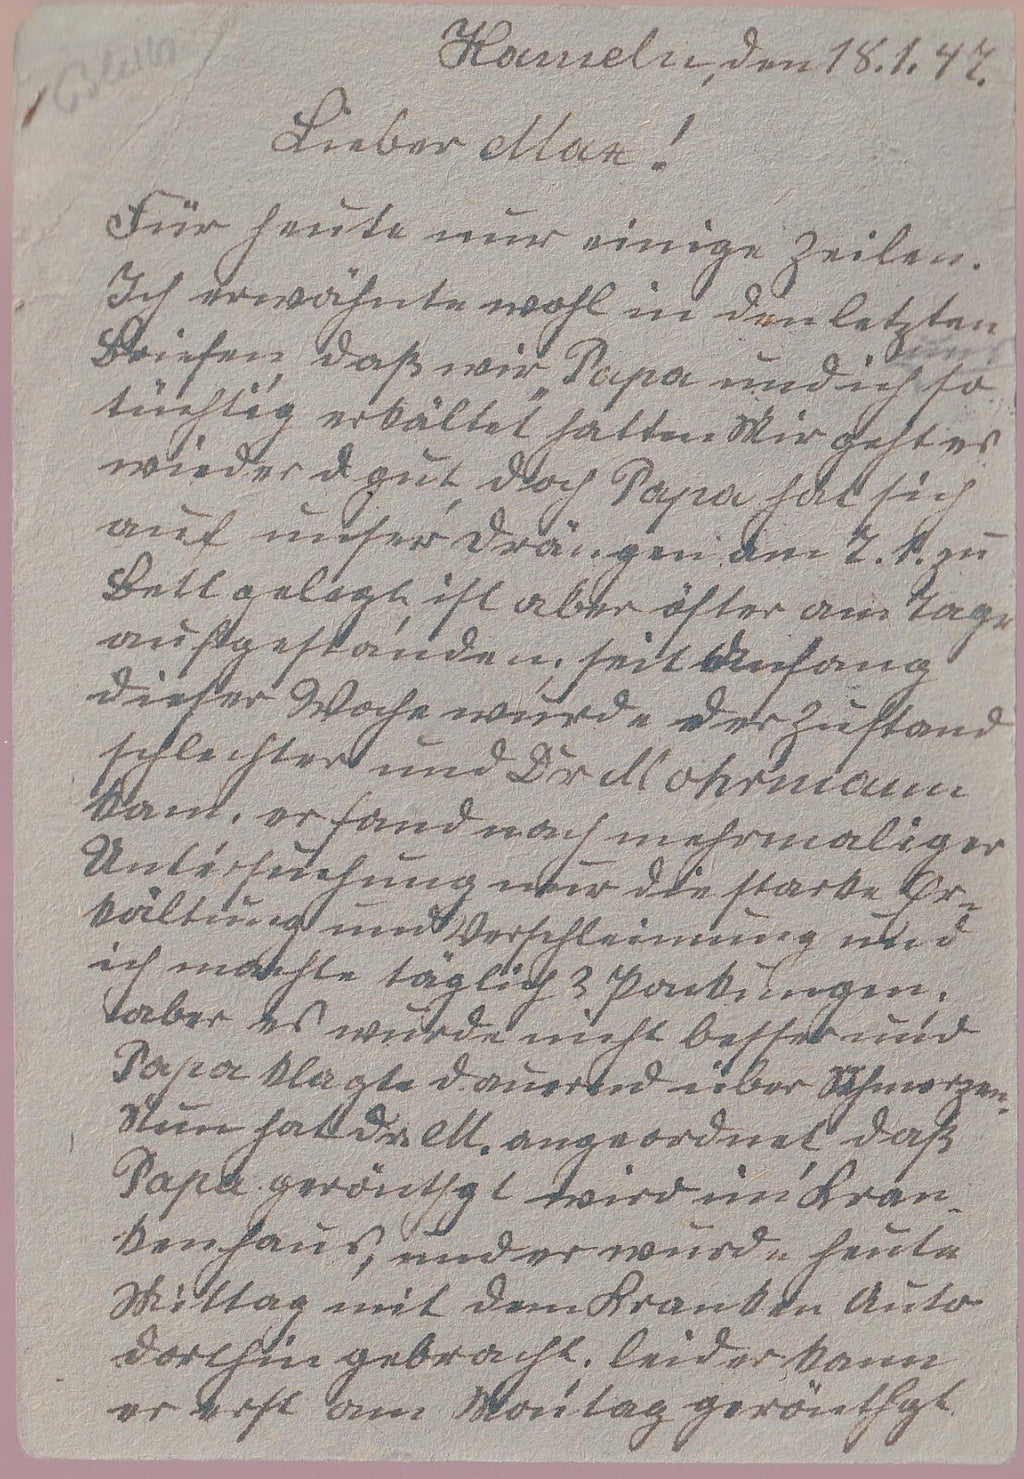 Hameln, den 18.1.47.
Lieber Max!
Für heute nur einige Zeilen.
Ich erwähnte wohl in den letzten
uns
Briefen, daß wir, Papa und ich so
tüchtig erkältet hatten Mir geht es
wieder gut, doch Papa hat sich
auf unser Drängen am 7.1. zu
Bett gelegt, ist aber öfter am Tage
aufgestanden, seit Anfang
dieser Woche wurde der Zustand
schlechter und Dr Mohrmann
kam. er fand nach mehrmaliger
Untersuchung nur die starke Er-
kältung und Verschleimung und
ich machte täglich 3 Packungen,
aber es wurde nicht besser und
Papa klagte dauernd über Schmerzen.
Nun hat Dr. M. angeordnet, daß
Papa geröntgt wird im Kran-
kenhaus, und er wurde heute
Mittag mit dem Kranken Auto
dorthin gebracht. leider kann
er erst am Montag geröntgt